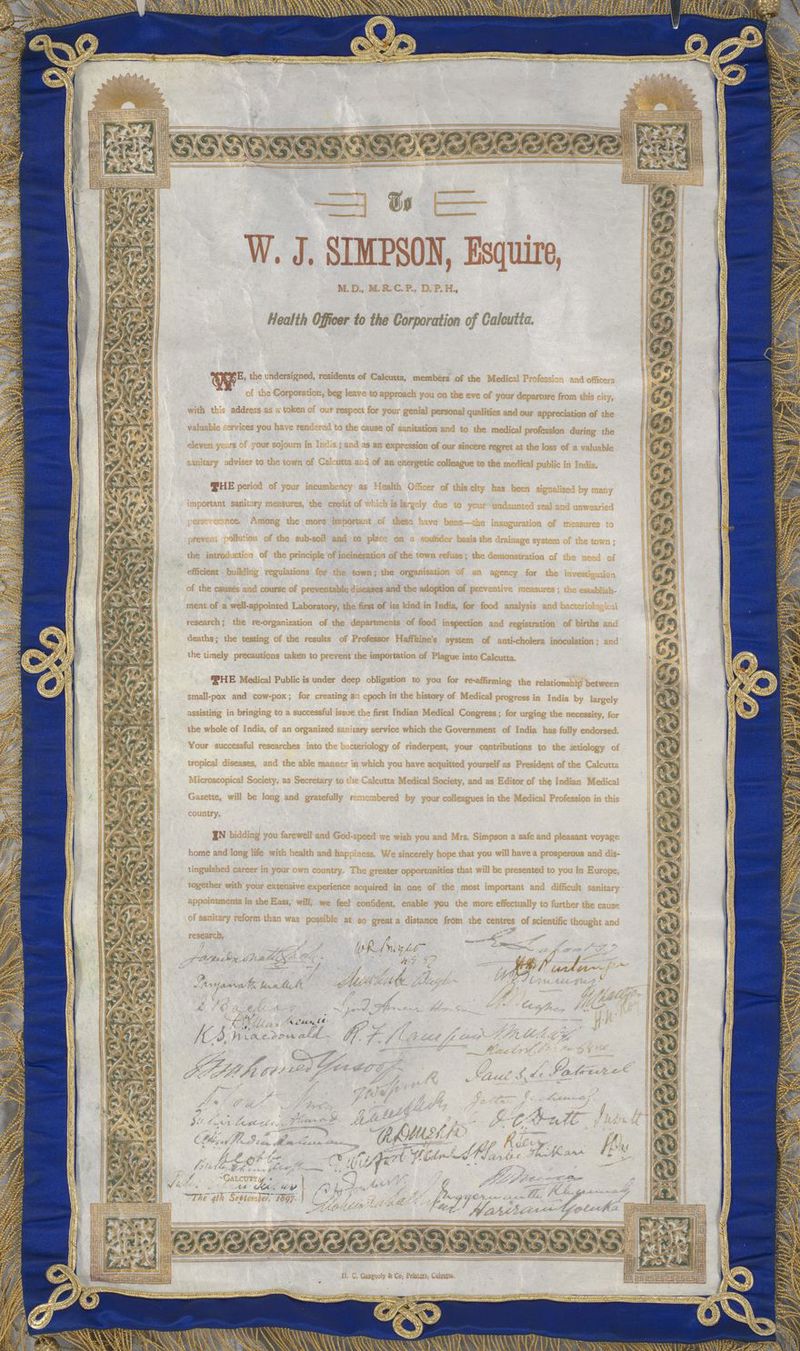 To
W. J. SIMPSON, Esquire,
M. D., M. R. C. P., D. P. H.,
Health Officer to the Corporation of Calcutta.
WE, the undersigned, residents of Calcutta, members of the Medical Profession and officers
of the Corporation, beg leave to approach you on the eve of your departure from this city,
with this address as a token of our respect for your genial personal qualities and our appreciation of the
valuable services you have rendered to the cause of sanitation and to the medical profession during the
eleven years of your sojourn in India; and as an expression of our sincere regret at the loss of a valuable
sanitary adviser to the town of Calcutta and of an energetic colleague to the medical public in India.
THE period of your incumbency as Health Officer of this city has been signalised by many
important sanitary measures, the credit of which is largely due to your undaunted zeal and unwearied
perseverance. Among the more important of these have been—the inauguration of measures to
prevent pollution of the sub-soil and to place on a sounder basis the drainage system of the town;
the introduction of the principle of incineration of the town refuse; the demonstration of the need of
efficient building regulations for the town; the organisation of an agency for the investigation
of the causes and course of preventable diseases and the adoption of preventive measures; the establish-
ment of a well-appointed Laboratory, the first of its kind in India, for food analysis and bacteriological
research; the re-organization of the departments of food inspection and registration of births and
deaths; the testing of the results of Professor Haffkine's system of anti-cholera inoculation; and
the timely precautions taken to prevent the importation of Plague into Calcutta.
THE Medical Public is under deep obligation to you for re-affirming the relationship between
small-pox and cow-pox; for creating an epoch in the history of Medical progress in India by largely
assisting in bringing to a successful issue the first Indian Medical Congress; for urging the necessity, for
the whole of India, of an organized sanitary service which the Government of India has fully endorsed.
Your successful researches into the bacteriology of rinderpest, your contributions to the ætiology of
tropical diseases, and the able manner in which you have acquitted yourself as President of the Calcutta
Microscopical Society, as Secretary to the Calcutta Medical Society, and as Editor of the Indian Medical
Gazette, will be long and gratefully remembered by your colleagues in the Medical Profession in this
country.
IN bidding you farewell and God-speed we wish you and Mrs. Simpson a safe and pleasant voyage
home and long life with health and happiness. We sincerely hope that you will have a prosperous and dis-
tinguished career in your own country. The greater opportunities that will be presented to you in Europe,
together with your extensive experience acquired in one of the most important and difficult sanitary
appointments in the East, will, we feel confident, enable you the more effectually to further the cause
of sanitary reform than was possible at so great a distance from the centres of scientific thought and
research.
K. S. Macdonald
Mahomed Yusoof
R. D. Mehta
Hariram Goenka
CALCUTTA,
The 4th September, 1897.
H. C. Gangooly & Co., Printers, Calcutta.